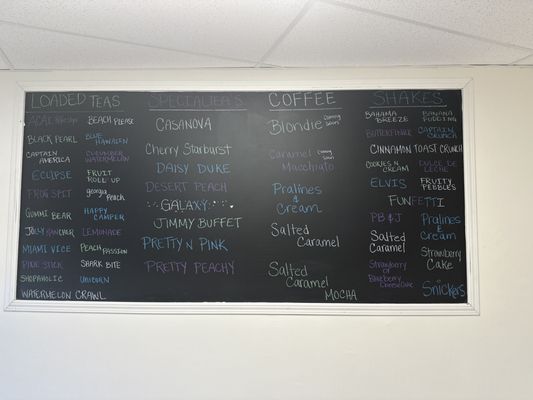 LOADED TEAS
ACAI
BLACK PEARL
CAPTAIN
AMERICA
ECLIPSE
FROG SPIT
GUMMI BEAR
JOLLY RANCHER
MIAMI VICE
PIXIE STICK
SHOPAHOLIC
WATERMELON CRAWL
BEACH PLEASE
BLUE
HAWAIIEN
CUCUMBER
WATERMELON
FRUIT
ROLL UP
georgia
PEACH
HAPPY
CAMPER
LEMONADE
PEACH PASSION
SHARK BITE
UNICORN
SPECIALTEA'S
CASANOVA
Cherry Starburst
DAISY DUKE
DESERT PEACH
GALAXY
JIMMY BUFFET
PRETTY N PINK
PRETTY PEACHY
COFFEE
Blondie coming
soon!
Caramel coming
soon!
Macchiato
Pralines
&
Cream
Salted
Caramel
Salted
Caramel
MOCHA
SHAKES
BAHAMA
BREEZE
BUTTERFINGER
CINNAMON TOAST CRUNCH
COOKIES N
CREAM
ELVIS
FUNFETTI
PB & J
Salted
Caramel
Strawberry
or
Blueberry
CheeseCake
BANANA
PUDDING
CAPTAIN
CRUNCH
DULCE DE
LECHE
FRUITY
PEBBLES
Pralines
&
Cream
Strawberry
Cake
Snickers